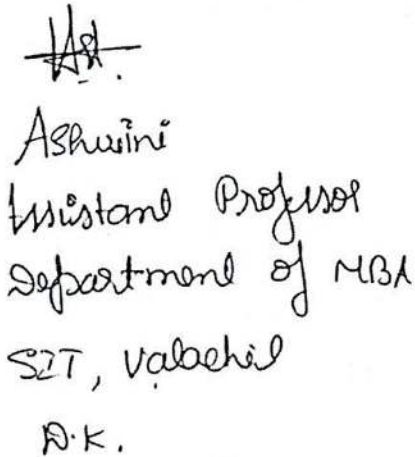 Ashwini
Assistant Professor
Department of MBA
SIT, Valachil
D.K.